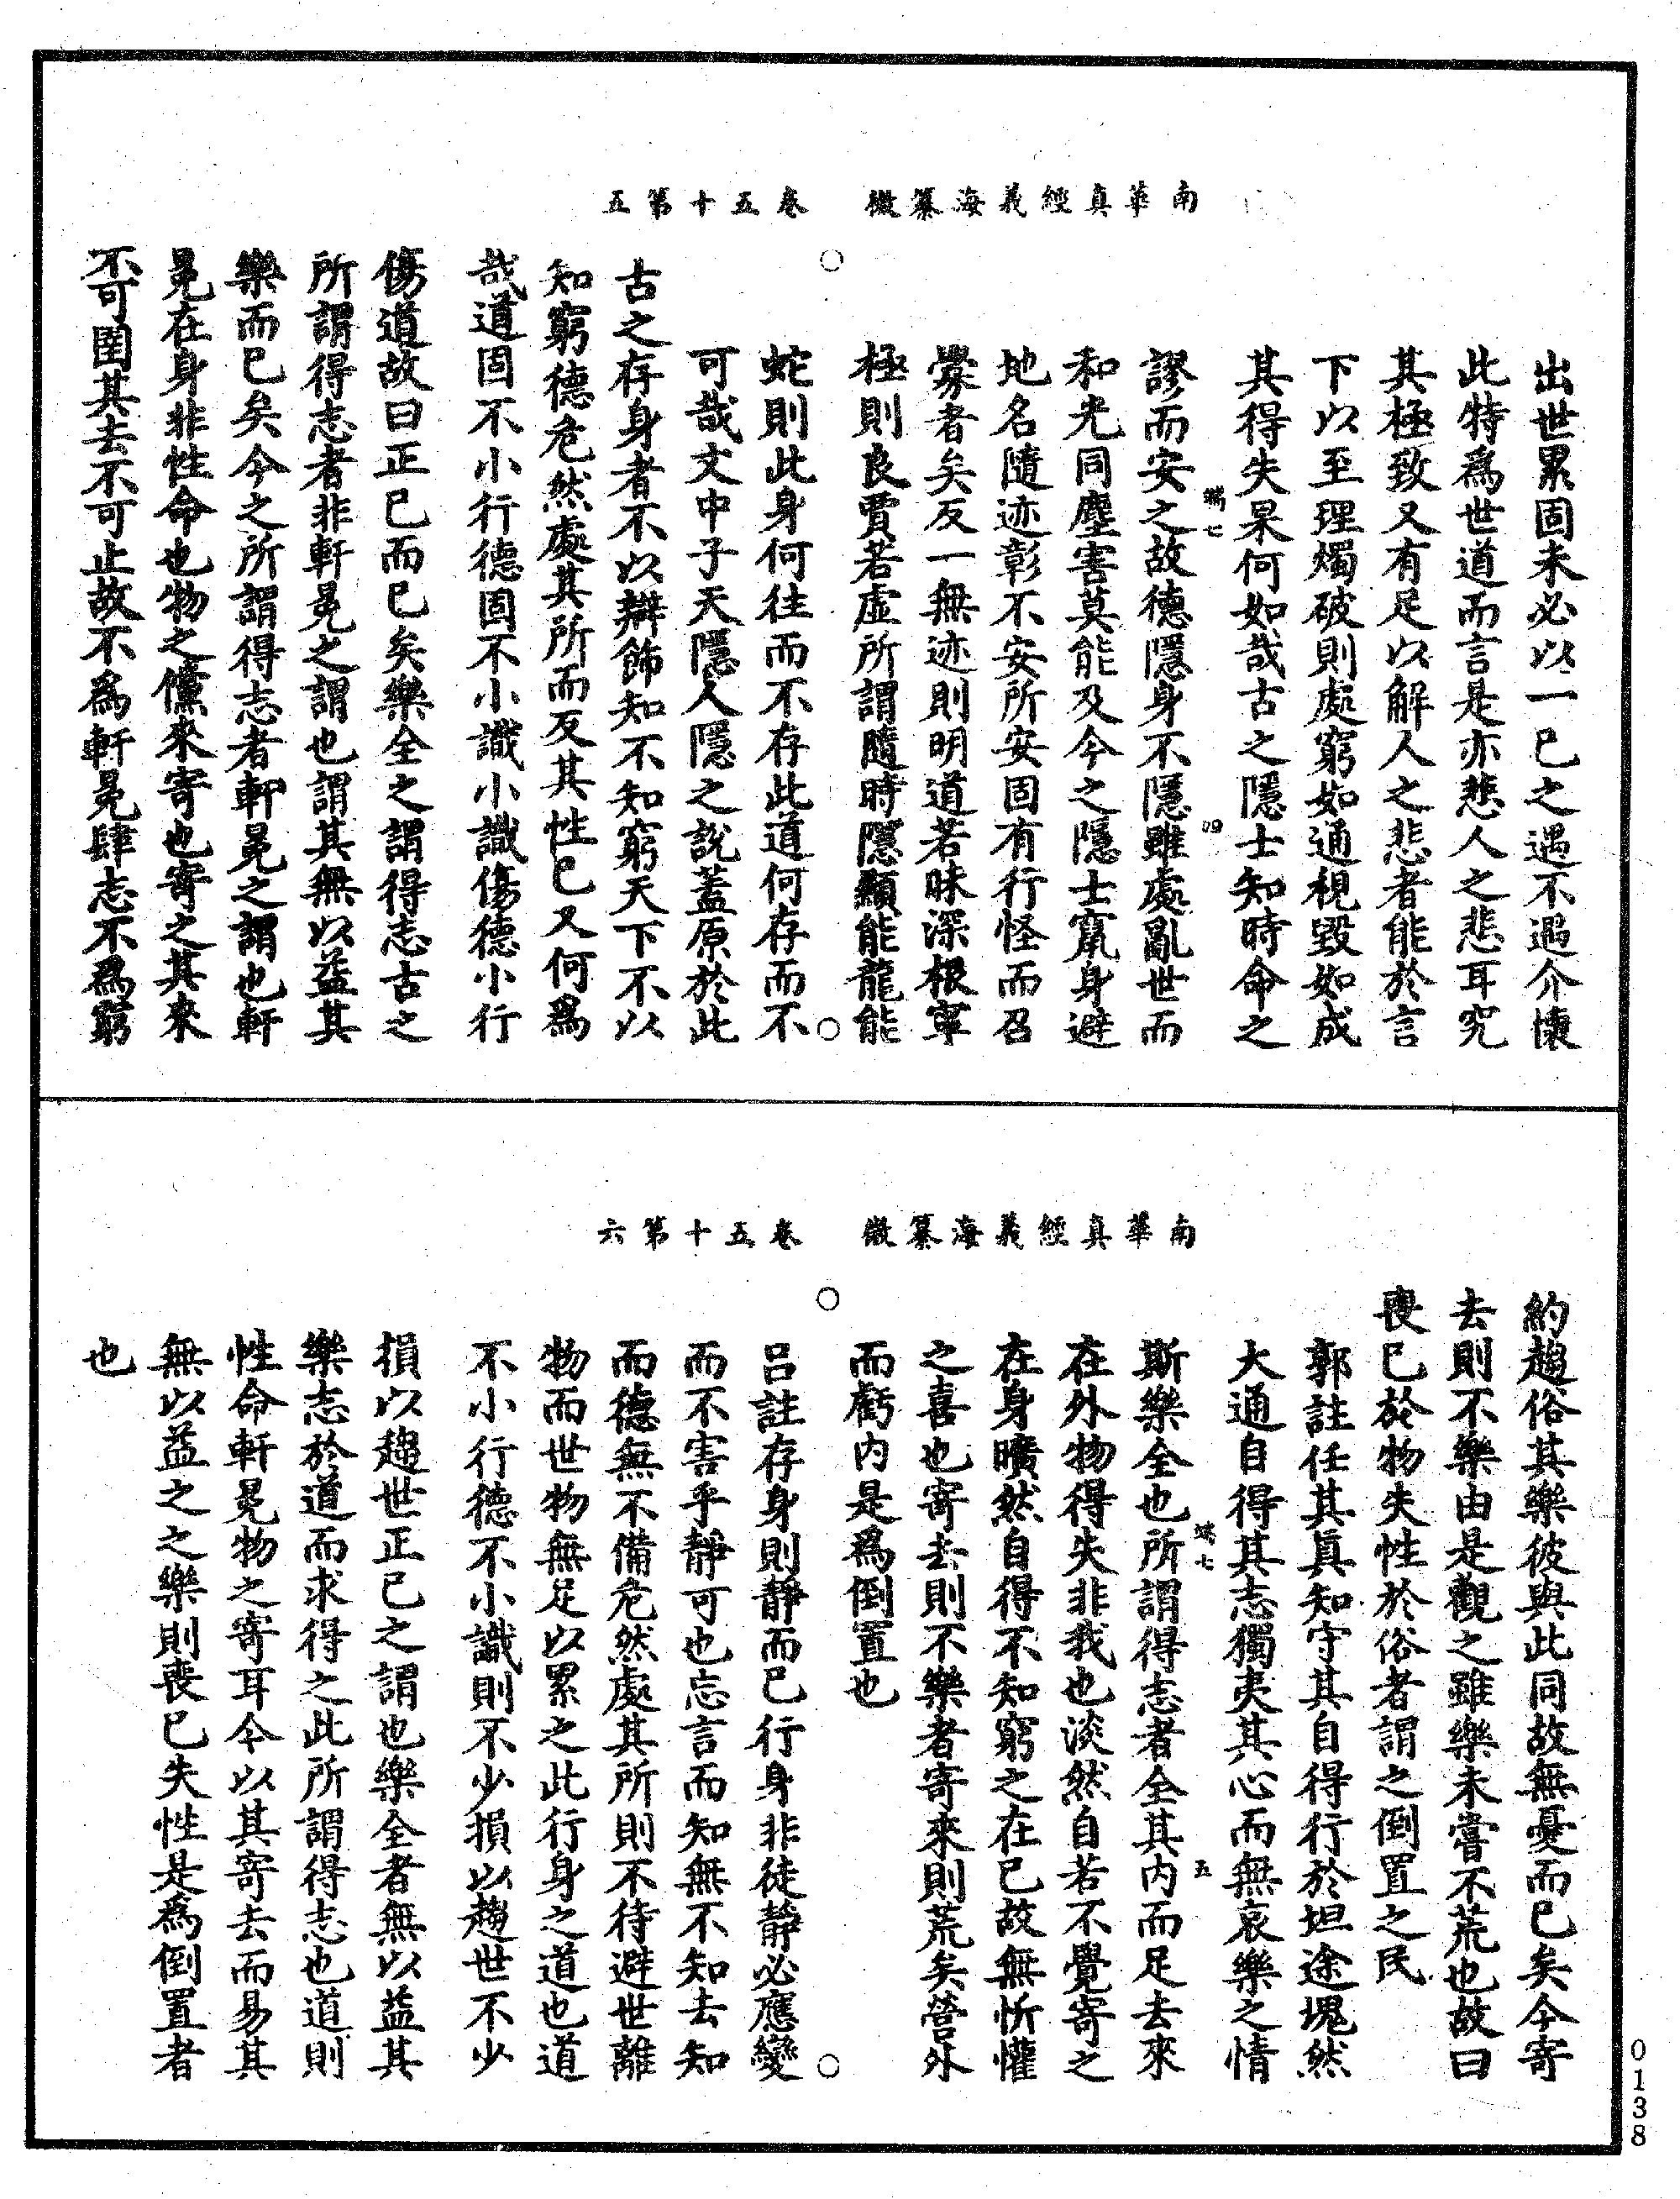 南華真經義海纂微　卷五十第五
出世累固未必以一已之遇不遇介懷
此特為世道而言是亦悲人之悲耳究
其極致又有足以解人之悲者能於言
下以至理燭破則處窮如通視毀如成
其得失果何如哉古之隱士知時命之
謬而安之故德隱身不隱雖處亂世而
和光同塵害莫能及今之隱士竄身避
地名隨迹彰不安所安固有行怪而召
釁者矣反一無迹則明道若昧深根寧
極則良賈若虛所謂隨時隱顯能龍能
蛇則此身何往而不存此道何存而不
可哉文中子天隱人隱之說蓋原於此
古之存身者不以辯飾知不知窮天下不以
知窮德危然處其所而反其性已又何為
哉道固不小行德固不小識小識傷德小行
傷道故曰正已而已矣樂全之謂得志古之
所謂得志者非軒冕之謂也謂其無以益其
樂而已矣今之所謂得志者軒冕之謂也軒
冕在身非性命也物之儻來寄也寄之其來
不可圉其去不可止故不為軒冕肆志不為窮
端七
四
南華真經義海纂微　卷五十第六
約趨俗其樂彼與此同故無憂而已矣今寄
去則不樂由是觀之雖樂未嘗不荒也故曰
喪已於物失性於俗者謂之倒置之民
郭註任其真知守其自得行於坦途塊然
大通自得其志獨夷其心而無哀樂之情
斯樂全也所謂得志者全其內而足去來
在外物得失非我也淡然自若不覺寄之
在身曠然自得不知窮之在已故無忻懽
之喜也寄去則不樂者寄來則荒矣營外
而虧內是為倒置也
呂註存身則靜而已行身非徒靜必應變
而不害乎靜可也忘言而知無不知去知
而德無不備危然處其所則不待避世離
物而世物無足以累之此行身之道也道
不小行德不小識則不少損以趨世不少
損以趨世正已之謂也樂全者無以益其
樂志於道而求得之此所謂得志也道則
性命軒冕物之寄耳今以其寄去而易其
無以益之之樂則喪已失性是為倒置者
也
端七
五
0138